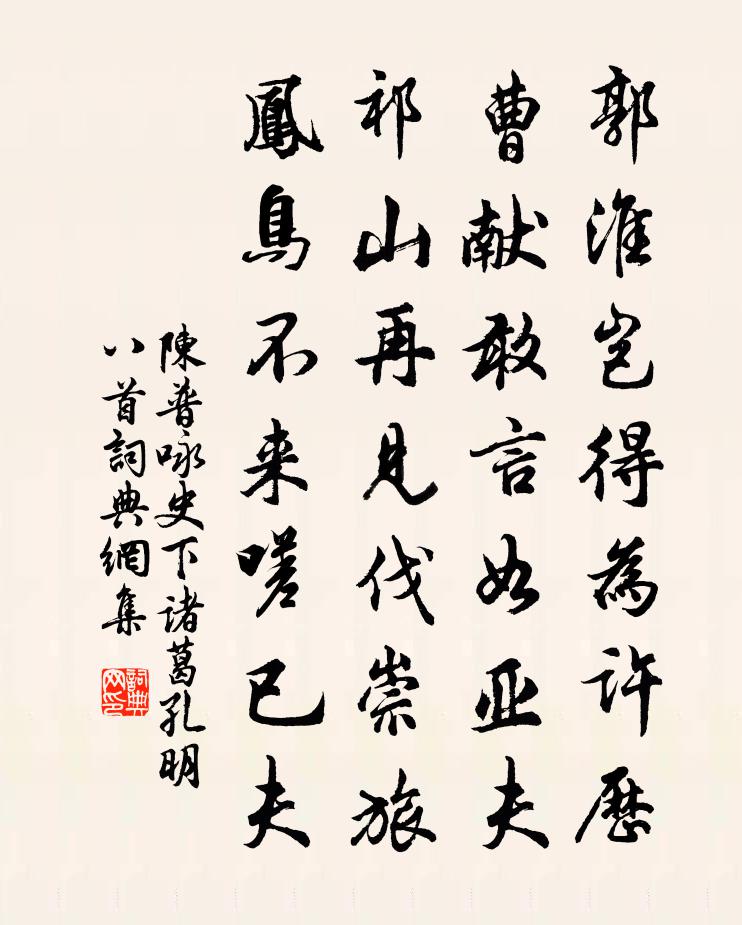 郭淮岂得為许歷
曹献敢言如亚夫
祁山再見伐崇旅
鳳鳥不来嗟已夫
陳普咏史下诸葛孔明
八首詞典網集
詞典网印